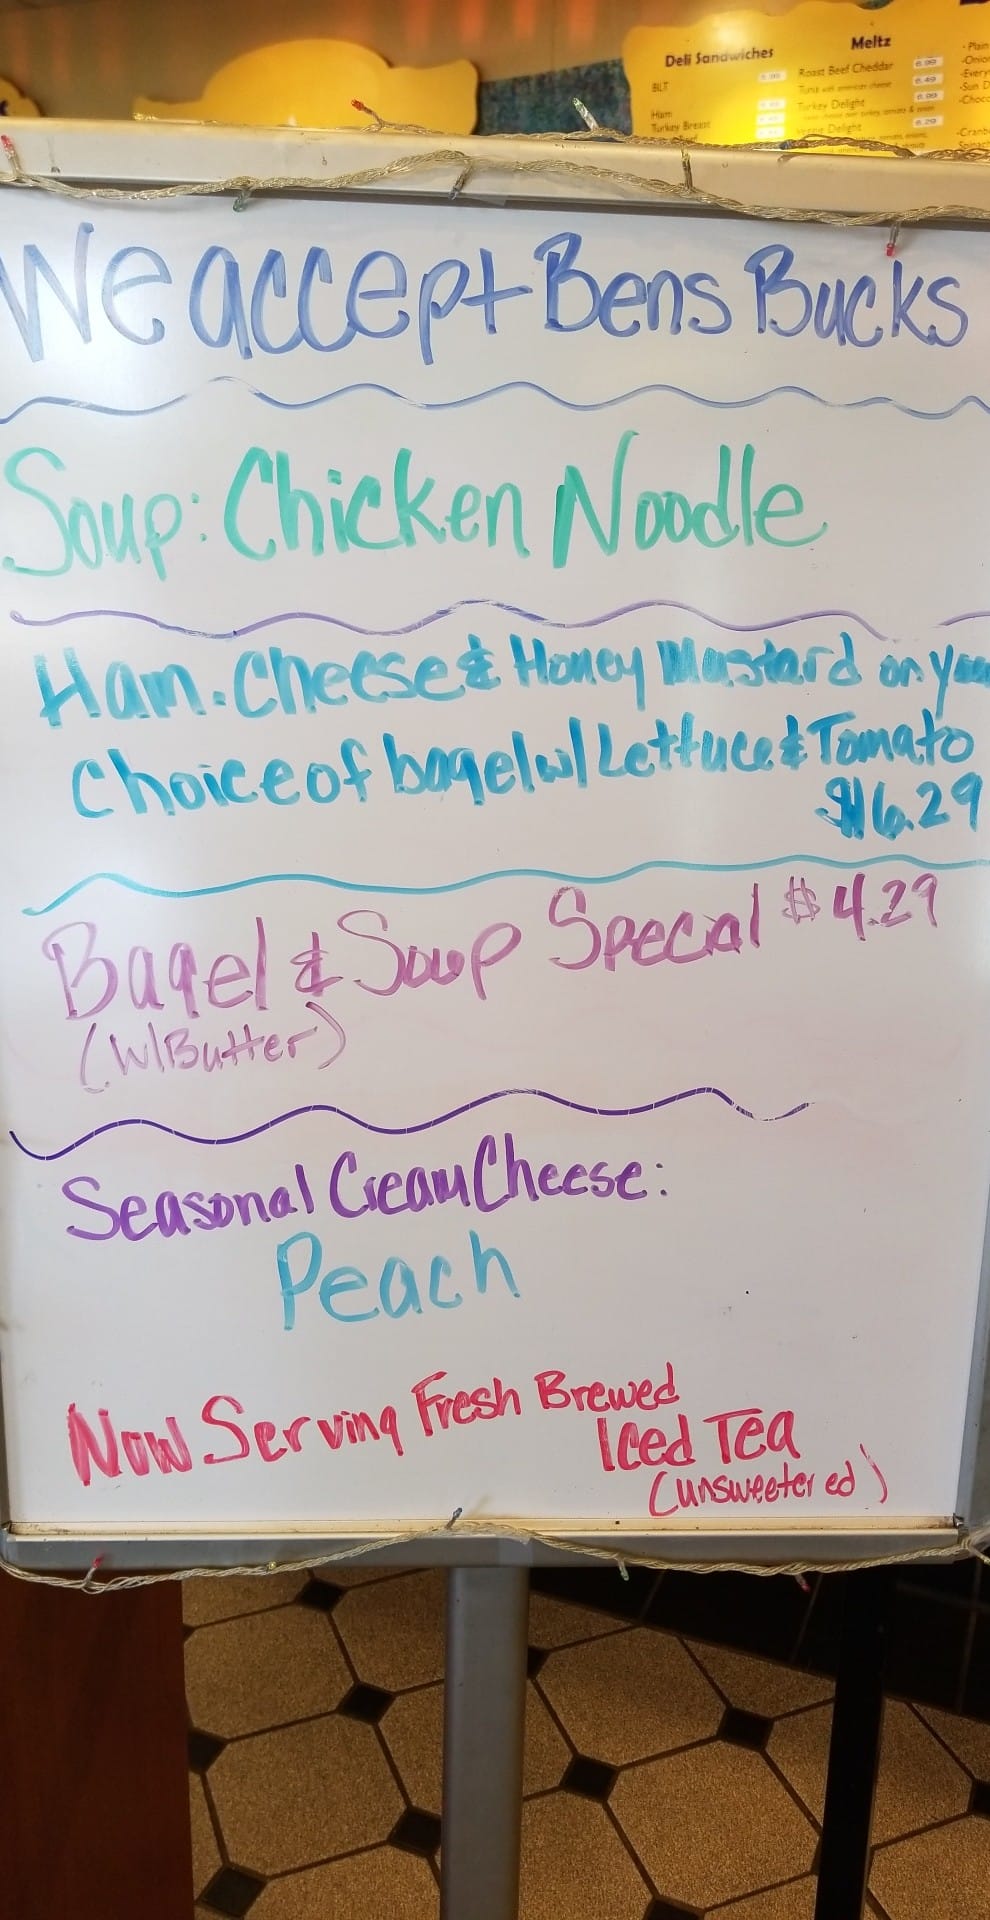 Deli Sandwiches
Meltz
BLT
6.99
Roast Beef Cheddar
6.99
Tuna with american cheese
6.49
Ham
Turkey Breast
Turkey Delight
6.99
Veggie Delight
6.29
We accept Bens Bucks
Soup: Chicken Noodle
Ham. Cheese & Honey Mustard on your
Choice of bagel w/ Lettuce & Tomato
$6.29
Bagel & Soup Special $4.29
(w/Butter)
Seasonal Cream Cheese:
Peach
Now Serving Fresh Brewed
Iced Tea
(unsweetered)